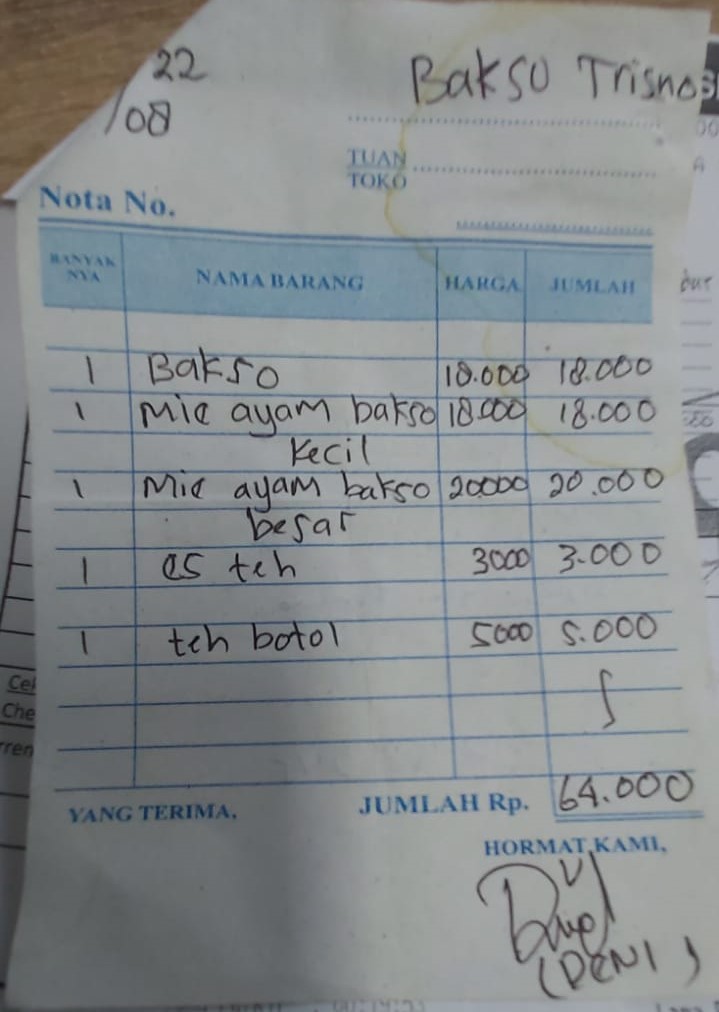 22
/08
Bakso Trisno
TUAN
TOKO
Nota No.
BANYAK NYA NAMA BARANG HARGA JUMLAH
1 Bakso 18.000 18.000
1 Mie ayam bakso 18.000 18.000
kecil
1 Mie ayam bakso 20000 20.000
besar
1 es teh 3000 3.000
1 teh botol 5000 5.000
YANG TERIMA, JUMLAH Rp. 64.000
HORMAT KAMI,
(DENI)
Cel
Che
rren